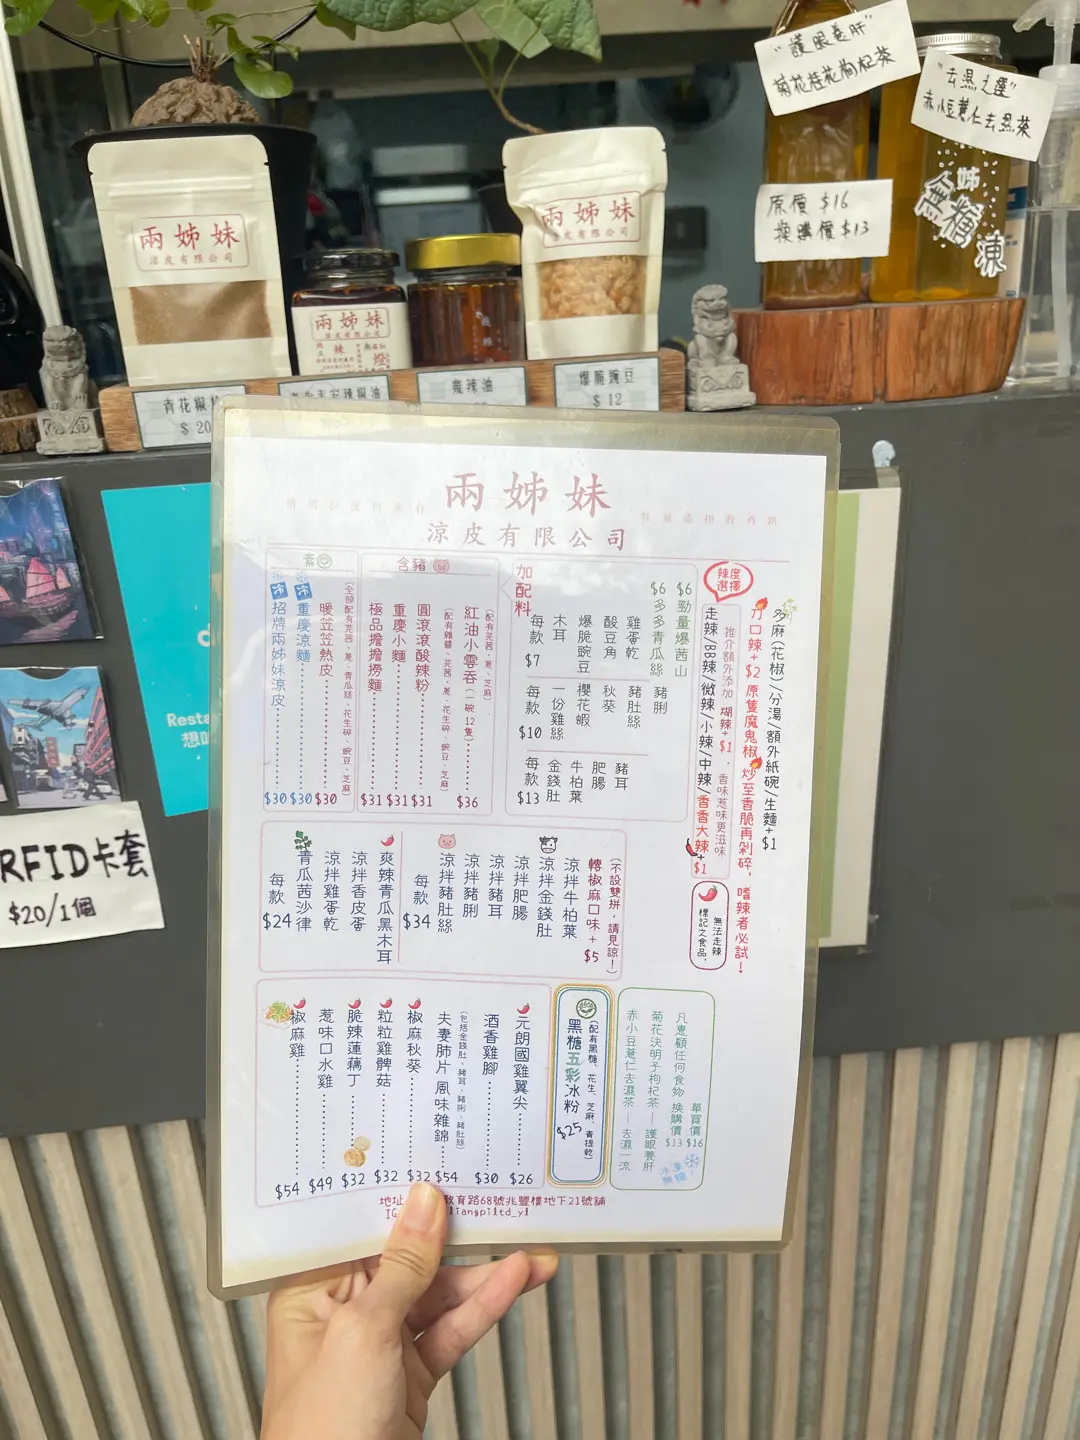 "護眼養肝"
菊花桂花枸杞茶
"去濕之寶"
赤小豆薏仁去濕茶
原價 $16
換購價 $13
兩姊妹
涼皮有限公司
兩姊妹
涼皮有限公司
兩姊妹
涼皮有限公司
青花椒
$ 20
爽辣油
爆脆豌豆
$ 12
RFID卡套
$20/1個
兩姊妹
涼皮有限公司
素
冷 招牌兩姊妹涼皮 $30
冷 重慶涼麵 $30
暖笠笠熱皮 $30
(全部配有芫茜、蔥、青瓜絲、花生碎、豌豆、芝麻)
含豬
極品擔擔撈麵 $31
重慶小麵 $31
圓滾滾酸辣粉 $31
(配有雜醬、芫茜、蔥、花生碎、豌豆、芝麻)
紅油小雲吞(一碗12隻) $36
(配有芫茜、蔥、芝麻)
加配料
$6 勁量爆茜山
$6 多多青瓜絲
雞蛋乾
酸豆角
爆脆豌豆
木耳
每款 $7
豬脷
豬肚絲
秋葵
櫻花蝦
一份雞絲
每款 $10
豬耳
肥腸
牛柏葉
金錢肚
每款 $13
辣度選擇
走辣/BB辣/微辣/小辣/中辣/香香大辣+$1
推介額外添加 煳辣+$1，香味惹味更滋味
刀口辣+$2 原隻魔鬼椒炒至香脆再剁碎，嗜辣者必試！
多麻(花椒)/分湯/額外紙碗/生麵+$1
無法走辣
標記之食品，
爽辣青瓜黑木耳
涼拌香皮蛋
涼拌雞蛋乾
青瓜茜沙律
每款 $24
轉椒麻口味+$5
(不設雙拼，請見諒！)
涼拌牛柏葉
涼拌金錢肚
涼拌肥腸
涼拌豬耳
涼拌豬脷
涼拌豬肚絲
每款 $34
椒麻雞 $54
惹味口水雞 $49
脆辣蓮藕丁 $32
粒粒雞髀菇 $32
椒麻秋葵 $32
夫妻肺片 風味雜錦 $54
(包括金錢肚、豬耳、豬脷、豬肚絲)
酒香雞腳 $30
元朗國雞翼尖 $26
黑糖五彩冰粉 $25
(配有黑糖、花生、芝麻、青提乾)
凡惠顧任何食物 換購價 $13 單買價 $16
菊花決明子枸杞茶 — 護眼養肝
赤小豆薏仁去濕茶 — 去濕一流
冷凍
無糖！
地址
教育路68號兆豐樓地下21號舖
IG
liangpiltd_yl